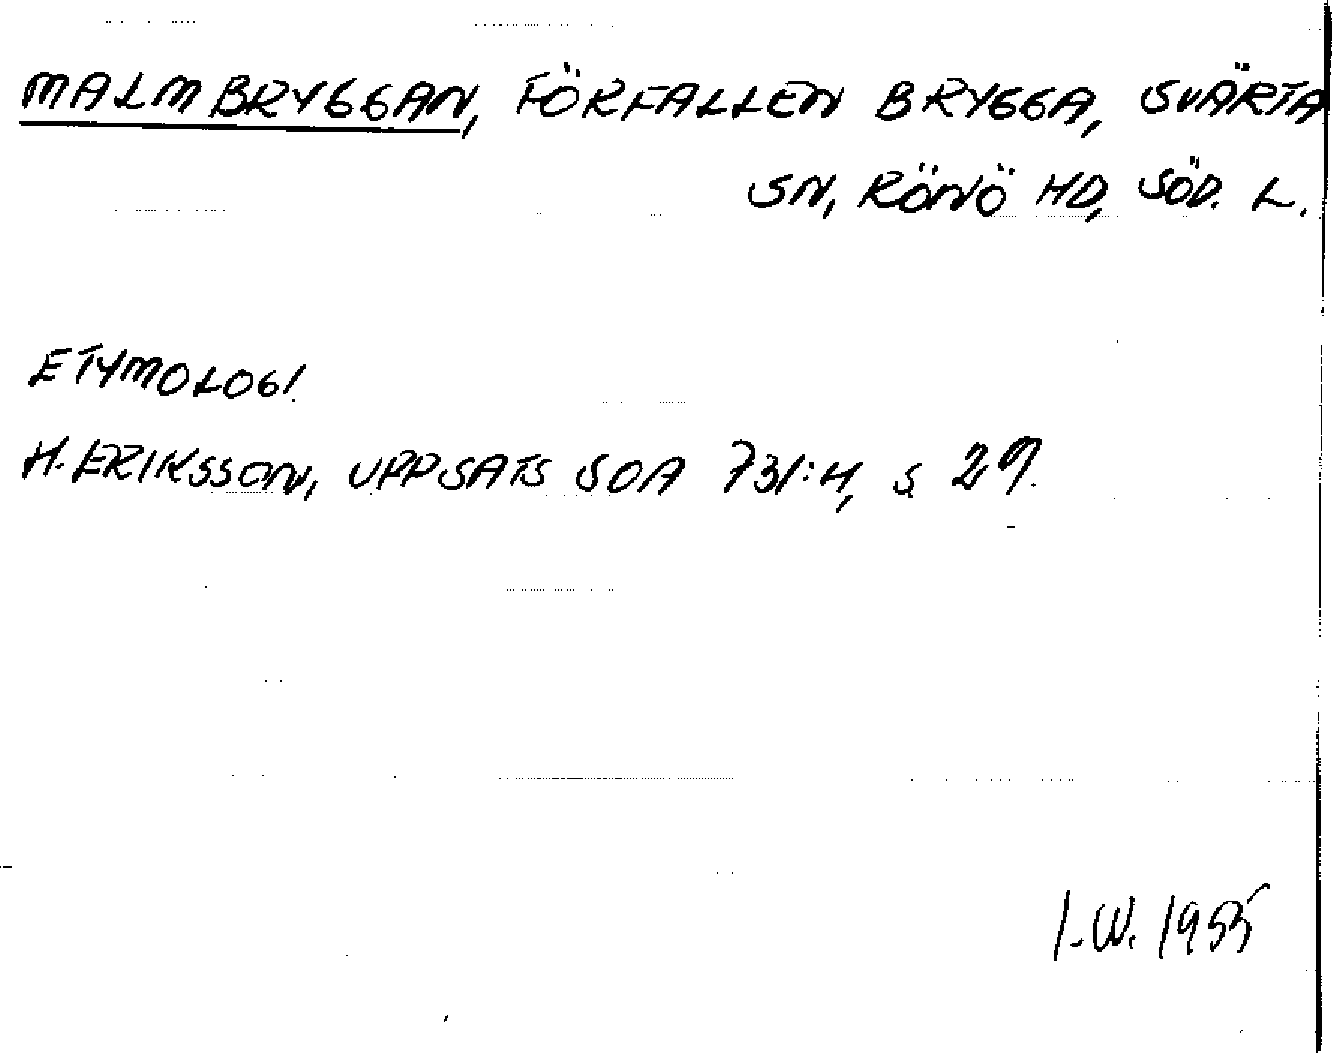 MALMBRYGGAN, FÖRFALLEN BRYGGA, SVÄRTA
SN, RÖNÖ HD, SÖD. L.
ETYMOLOGI.
H. ERIKSSON, UPPSATS SOA 731:4, S 29.
I.W. 1955